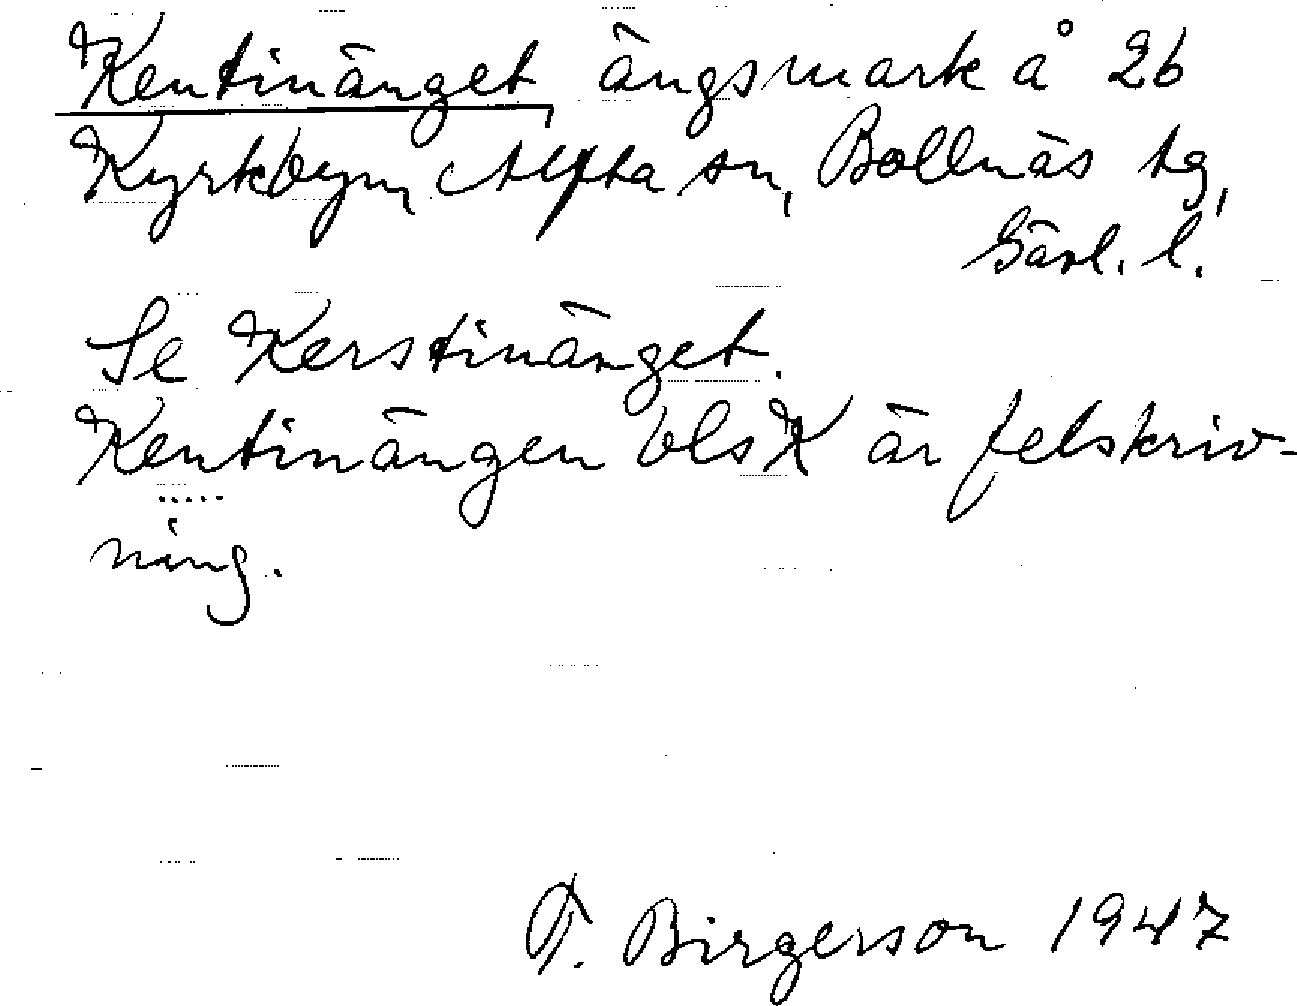 Kentinänget, ängsmark å 26
Kyrkbyn, Alfta sn, Bollnäs tg,
Gävl. l.
Se Kerstinänget.
Kentinängen blsK är felskriv-
ning.
T. Birgerson 1947